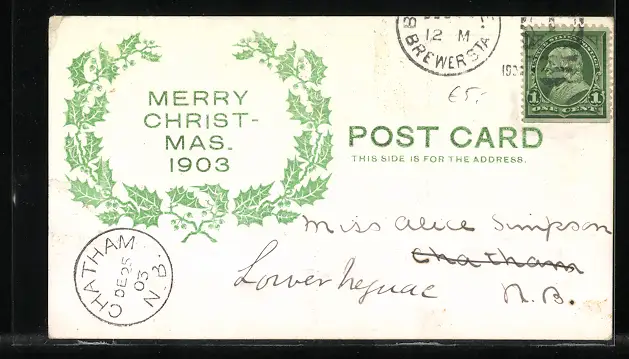 MERRY
CHRIST-
MAS.
1903
12 M
BREWER STA.
€5,-
1
1
ONE CENT
POST CARD
THIS SIDE IS FOR THE ADDRESS.
Miss Alice Simpson
Chatham
Lower Neguac
N.B.
CHATHAM
DE 25
03
N.B.